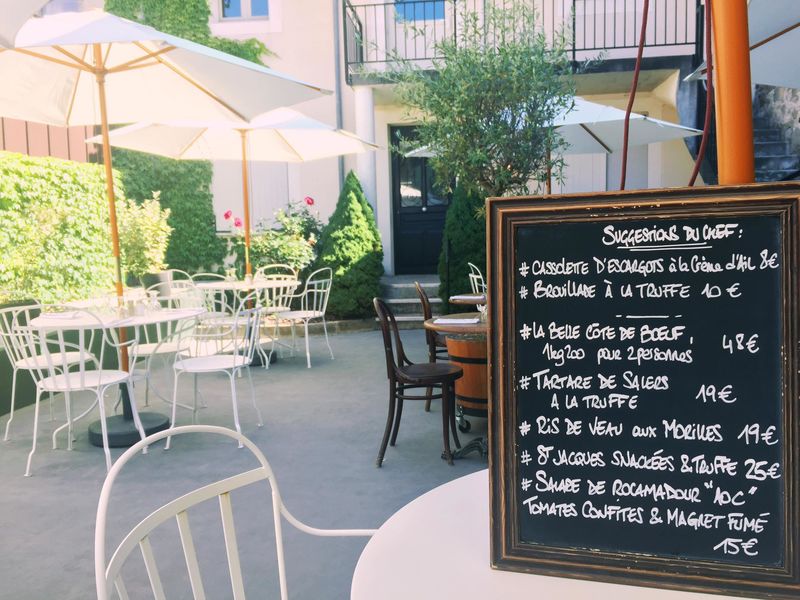 SUGGESTIONS DU CHEF :
# CASSOLETTE D'ESCARGOTS à la Crème d'Ail 8€
# BROUILLADE À LA TRUFFE 10 €
# LA BELLE CÔTE DE BŒUF,
1kg200 pour 2 personnes 48€
# TARTARE DE SALERS
A LA TRUFFE 19€
# RIS DE VEAU aux MORILLES 19€
# ST JACQUES SNACKÉES & TRUFFE 25€
# SALADE DE ROCAMADOUR "AOC"
TOMATES CONFITES & MAGRET FUMÉ
15€